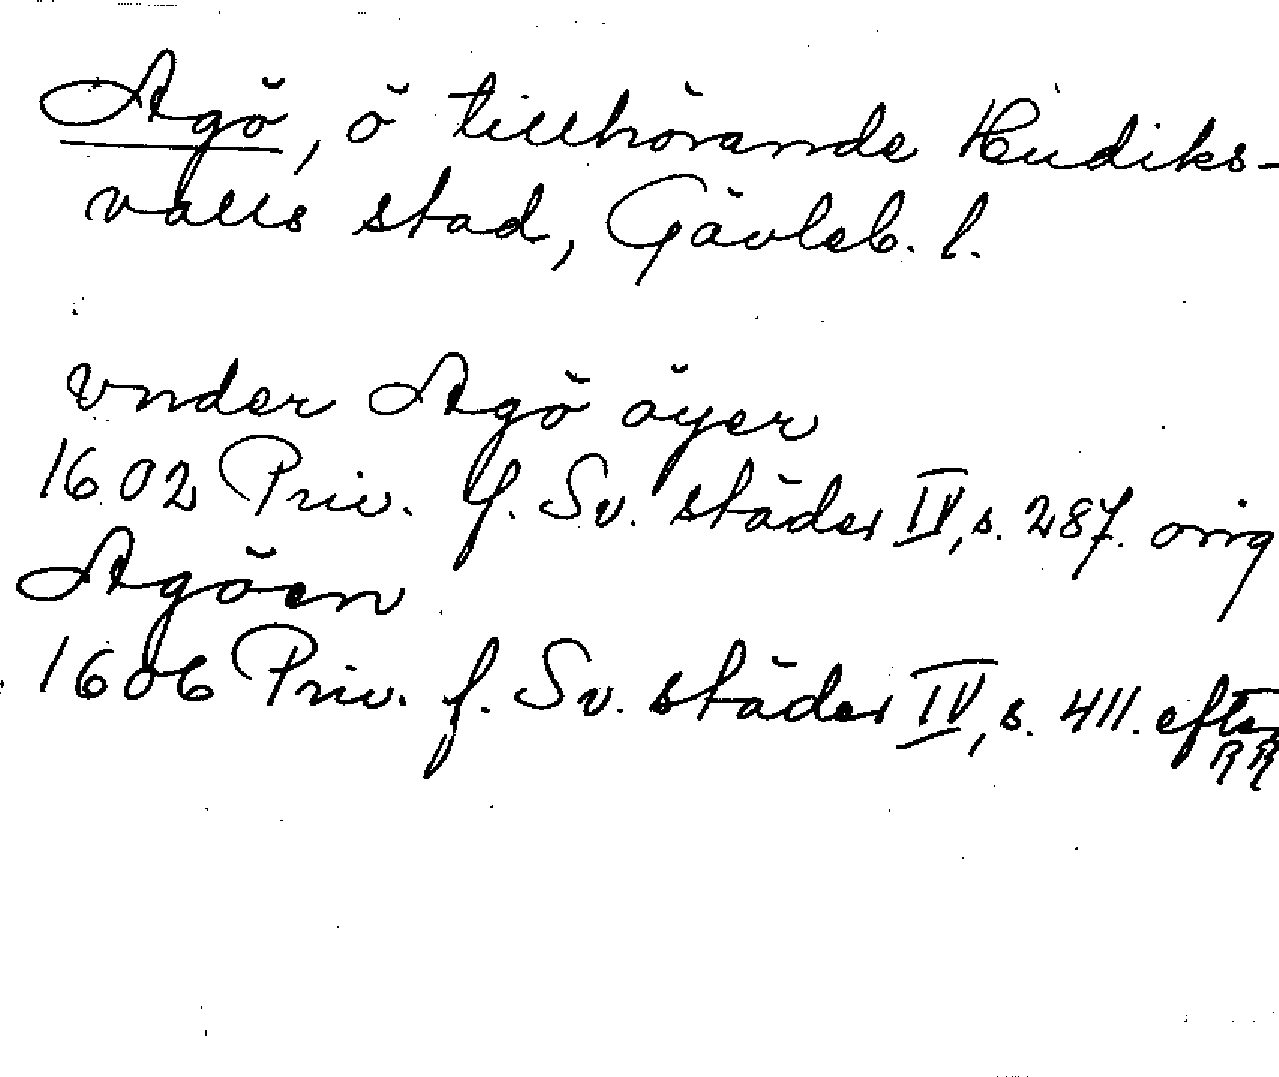 Agö, ö tillhörande Hudiks-
valls stad, Gävleb. l.
vnder Agö öyer
1602 Priv. f. Sv. städer IV, s. 287. orig
Agöen
1606 Priv. f. Sv. städer IV, s. 411. efter
RR